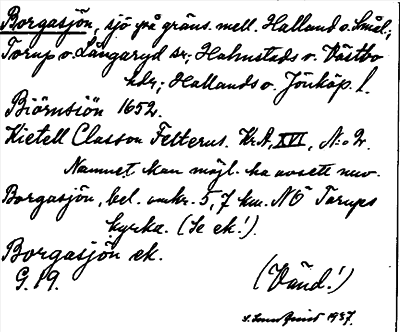 Borgasjön, sjö på gräns. mell. Halland o. Smål.;
Torup o. Långaryd sr; Halmstads o. Västbo
hdr; Hallands o. Jönköp. l.
Biörnsiön 1652.
Kietell Classon Felterus. KrA, XVI, N:o 2.
Namnet kan möjl. ha avsett nuv.
Borgasjön, bel. omkr. 5,7 km. NÖ Torups
kyrka. (Se ek!).
Borgasjön ek.
G. 19.
(Vänd!)
1937.